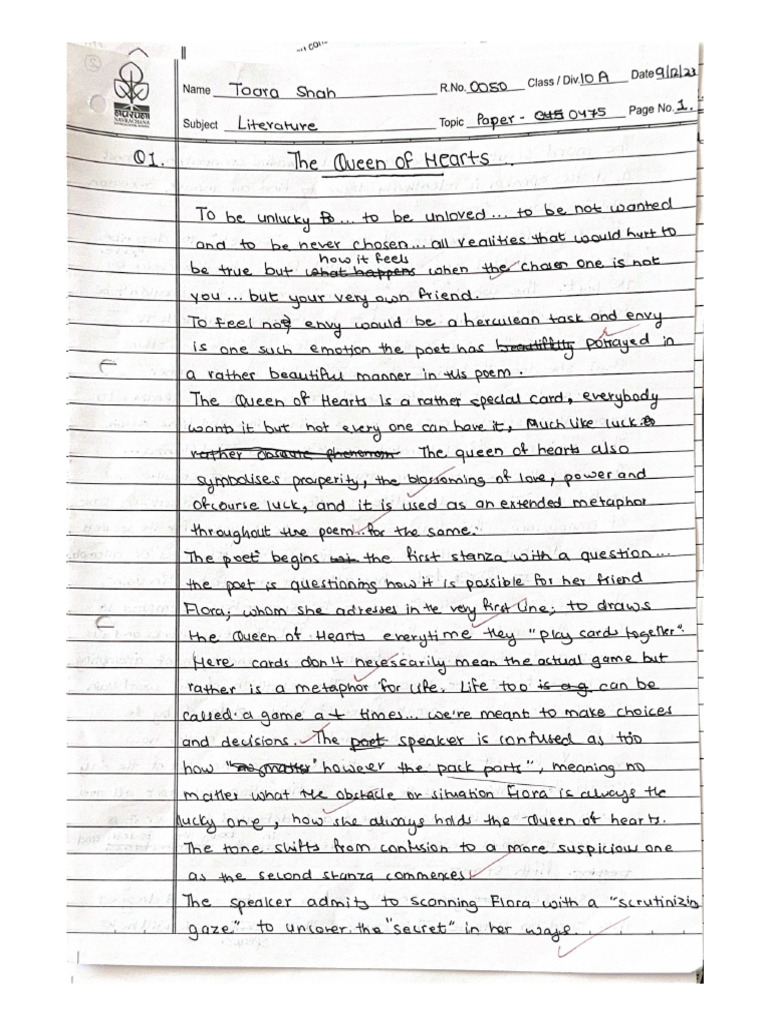 Name Taara Shah R.No. 0050 Class / Div. 10 A Date 9/12/23
Subject Literature Topic Paper - 0475 Page No. 1.
Q1. The Queen of Hearts.
To be unlucky ... to be unloved ... to be not wanted
and to be never chosen ... all realities that would hurt to
be true but how it feels when the chosen one is not
you ... but your very own friend.
To feel not envy would be a herculean task and envy
is one such emotion the poet has potrayed in
a rather beautiful manner in this poem.
The Queen of Hearts is a rather special card, everybody
wants it but not every one can have it, Much like luck
The queen of hearts also
symbolises prosperity, the blossoming of love, power and
ofcourse luck, and it is used as an extended metaphor
throughout the poem for the same.
The poet begins the first stanza with a question...
the poet is questioning how it is possible for her friend
Flora; whom she adresses in the very first line; to draws
the Queen of Hearts everytime they "play cards together".
Here cards don't necessarily mean the actual game but
rather is a metaphor for life. Life too can be
called a game at times... we're meant to make choices
and decisions. The speaker is confused as too
how "however the pack parts", meaning no
matter what the obstacle or situation Flora is always the
lucky one, how she always holds the Queen of hearts.
The tone shifts from confusion to a more suspicious one
as the second stanza commences.
The speaker admits to scanning Flora with a "scrutinizing
gaze" to uncover the "secret" in her ways.